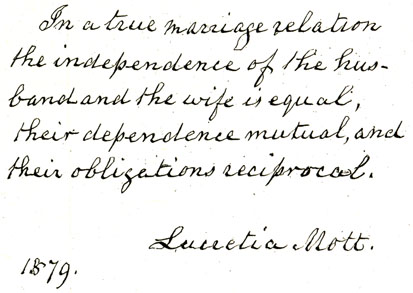 In a true marriage relation
the independence of the hus-
band and the wife is equal,
their dependence mutual, and
their obligations reciprocal.
Lucretia Mott.
1879.